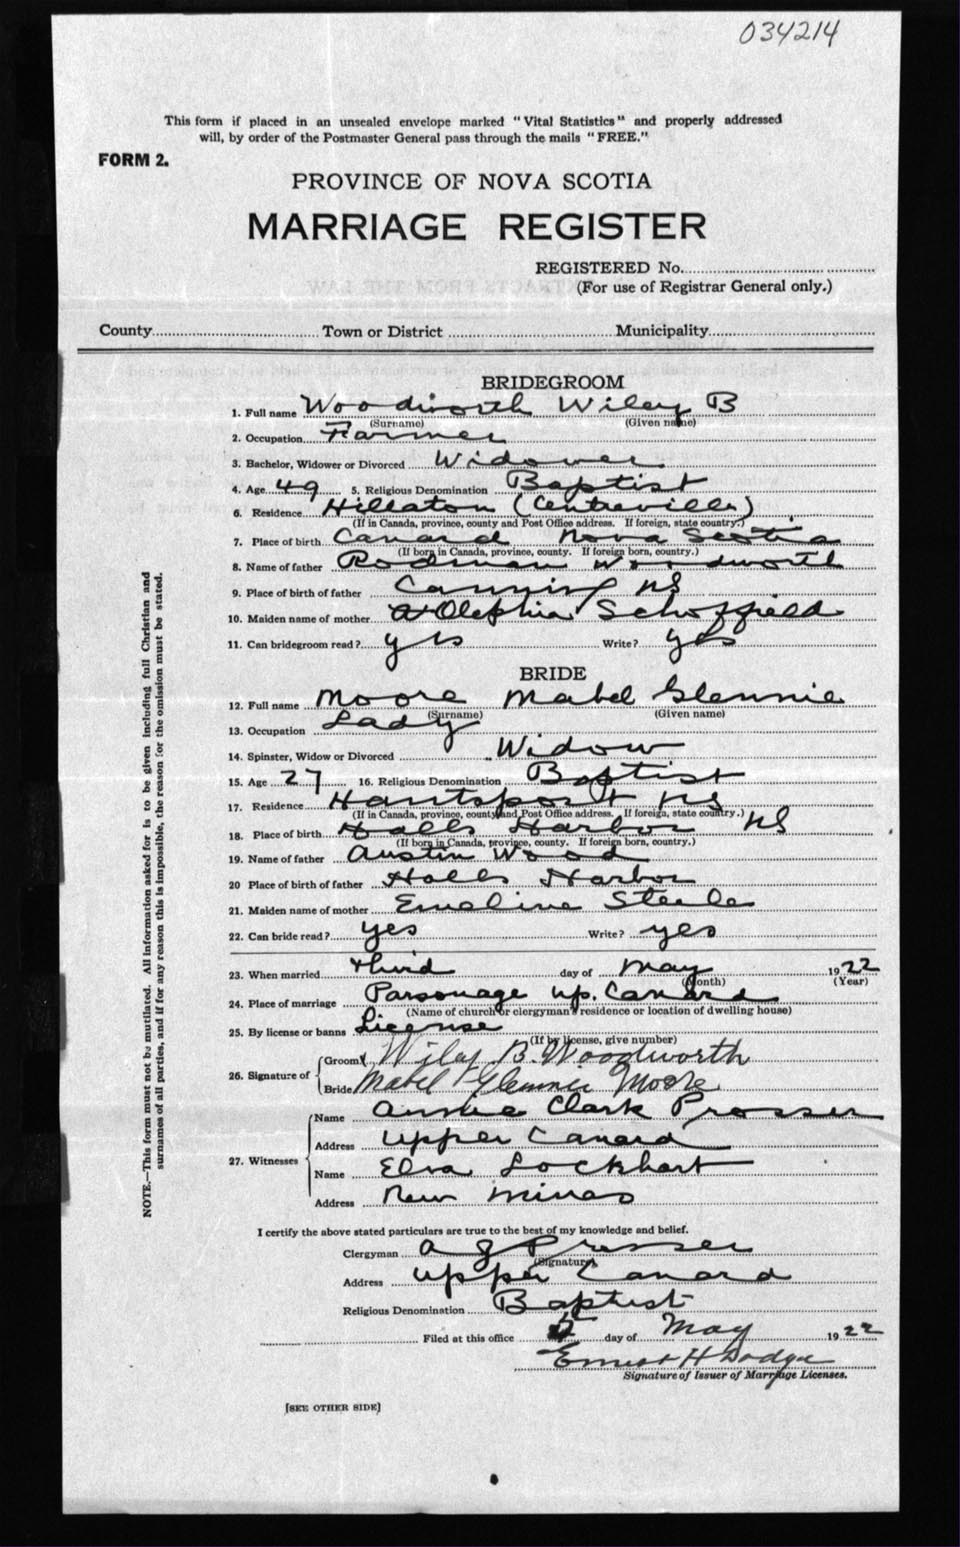 034214
This form if placed in an unsealed envelope marked "Vital Statistics" and properly addressed
will, by order of the Postmaster General pass through the mails "FREE."
FORM 2.
PROVINCE OF NOVA SCOTIA
MARRIAGE REGISTER
REGISTERED No.
(For use of Registrar General only.)
County Town or District Municipality
BRIDEGROOM
1. Full name Woodworth Wiley B
(Surname) (Given name)
2. Occupation Farmer
3. Bachelor, Widower or Divorced Widower
4. Age 49 5. Religious Denomination Baptist
6. Residence Hillaton (Centreville)
(If in Canada, province, county and Post Office address. If foreign, state country.)
7. Place of birth Canard Nova Scotia
(If born in Canada, province, county. If foreign born, country.)
8. Name of father Rodman Woodworth
9. Place of birth of father Canning NS
10. Maiden name of mother Schoffield
11. Can bridegroom read? yes Write? yes
BRIDE
12. Full name Moore Mabel Glennie
(Surname) (Given name)
13. Occupation Lady
14. Spinster, Widow or Divorced Widow
15. Age 27 16. Religious Denomination Baptist
17. Residence Hantsport NS
(If in Canada, province, county and Post Office address. If foreign, state country.)
18. Place of birth Halls Harbor NS
(If born in Canada, province, county. If foreign born, country.)
19. Name of father Austin Wood
20 Place of birth of father Halls Harbor
21. Maiden name of mother Emeline Steele
22. Can bride read? yes Write? yes
23. When married third day of May 1922
(Month) (Year)
24. Place of marriage Parsonage Up. Canard
(Name of church or clergyman's residence or location of dwelling house)
25. By license or banns License
(If by license, give number)
26. Signature of Groom Wiley B. Woodworth
Bride Mabel Glennie Moore
27. Witnesses
Name Clark Prosser
Address Upper Canard
Name Elva Lockhart
Address New Minas
I certify the above stated particulars are true to the best of my knowledge and belief.
Clergyman A G Prosser
(Signature)
Address Upper Canard
Religious Denomination Baptist
Filed at this office day of May 1922
Ernest H Dodge
Signature of Issuer of Marriage Licenses.
[SEE OTHER SIDE]
NOTE.—This form must not be mutilated. All information asked for is to be given including full Christian and
surnames of all parties, and if for any reason this is impossible, the reason for the omission must be stated.